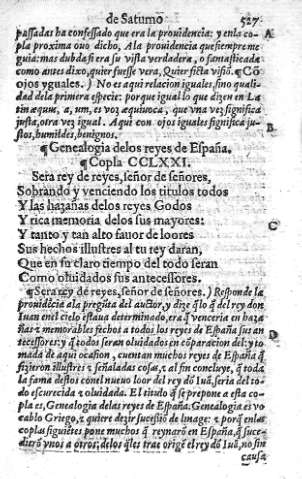 de Saturno 527
passadas ha confessado que era la prouidencia: y en la co- A
pla proxima ouo dicho, A la prouidencia que siempre me
guia: mas dubda si era su vista verdadera, o fantasticada
como antes dixo, quier fuesse vera, Quier ficta visiõ. ¶ Cõ
ojos yguales.) No es aqui relacion iguales, sino quali-
dad dela primera especie: porque igual lo que dizen en La
tin æquus, a, um, es voz æquiuoca, que vna vez significa
justa, otra vez igual. Aqui con ojos iguales significa ju-
stos, humildes, benignos. B
¶ Genealogia delos reyes de España.
¶ Copla CCLXXI.
Sera rey de reyes, señor de señores,
Sobrando y venciendo los titulos todos
Y las hazañas delos reyes Godos
Y rica memoria delos sus mayores: C
Y tanto y tan alto fauor de loores
Sus hechos illustres al tu rey daran,
Que en su claro tiempo del todo seran
Como oluidados sus antecessores.
¶ Sera rey de reyes, señor de señores.) Responde la
prouidẽcia ala pregũta del auctor, y dize q̃ lo q̃ del rey don
Iuan enel cielo estaua determinado, era q̃ venceria en haza
ñas z memorables fechos a todos los reyes de España sus an D
tecessores: y q̃ todos seran oluidados en cõparacion del: y to
mada de aqui ocasion, cuentan muchos reyes de España q̃
fizieron illustres z señaladas cosas, z al fin concluye, q̃ toda
la fama destos conel nueuo loor del rey dõ Iuã, seria del to-
do escurecida z oluidada. El titulo q̃ se prepone a esta co-
pla es, Genealogia delas reyes de España: Genealogia es vo
cablo Griego, z quiere dezir sucessiõ de linage: z porq̃ en las
coplas siguiẽtes pone muchos q̃ reynarõ en España, q̃ suce-
dierõ vnos a otros: delos q̃les trae origẽ el rey dõ Iuã, no sin
causa